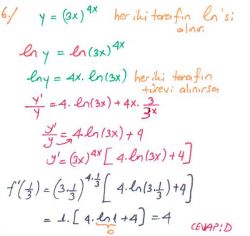 6/ y = (3x)^4x her iki tarafın ln'si
alınır.
ln y = ln(3x)^4x
lny = 4x. ln(3x) her iki tarafın
türevi alınırsa
y'/y = 4. ln(3x) + 4x. 3/3x
y'/y = 4. ln(3x) + 4
y' = (3x)^4x [ 4. ln(3x) + 4]
f'(1/3) = (3.1/3)^4.1/3 [ 4. ln(3.1/3) + 4]
= 1. [ 4. ln1 + 4] = 4
0
CEVAP: D